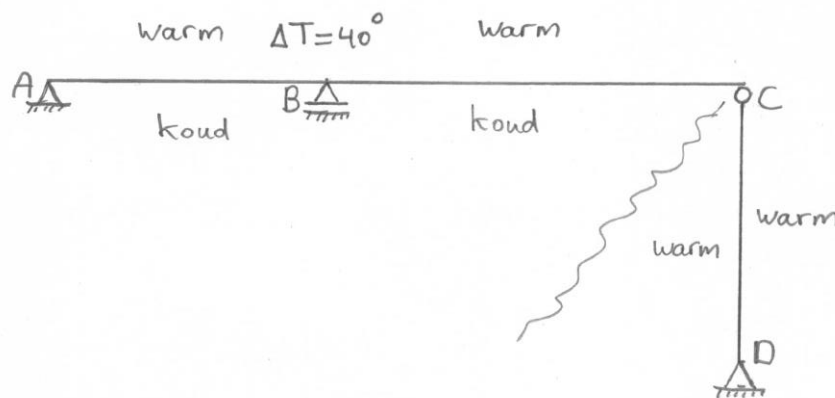 warm ΔT=40° warm
A B C
koud koud
warm
warm
D